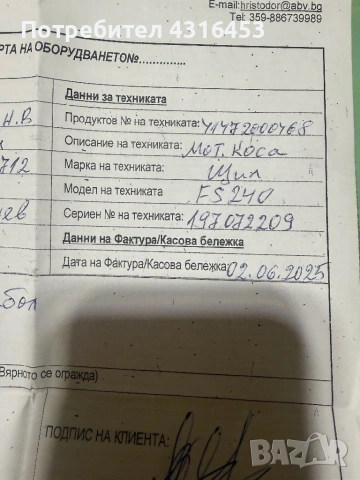 Потребител 4316453
E-mail:hristodor@abv.bg
Tel: 359-886739989
РТА НА ОБОРУДВАНЕТО№..............
Данни за техниката
Н.В
Продуктов № на техниката: 41472000468
Описание на техниката: Мот. Коса
712
Марка на техниката: Щил
Модел на техниката FS 240
ев
Сериен № на техниката: 197072209
Данни на Фактура/Касова бележка
Дата на Фактура/Касова бележка: 02.06.2025
бол
(Вярното се огражда)
ПОДПИС НА КЛИЕНТА:
BAZAR